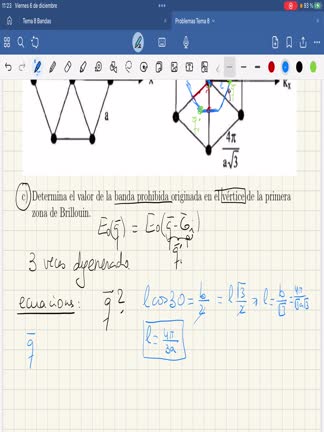 11:23 Viernes 6 de diciembre
83 %
Tema 8 Bandas
Problemas Tema 8
a
Kx
4π
a√3
c) Determina el valor de la banda prohibida originada en el vértice de la primera
zona de Brillouin.
E₀(q̄) = E₀(q̄ - Ḡn̂)
q̄'
3 veces degenerado
ecuaciones: q̄ ?
l cos30 = b/2 = l √3/2 → l = b/√3 = 4π/√3a√3
q̄
l = 4π/3a